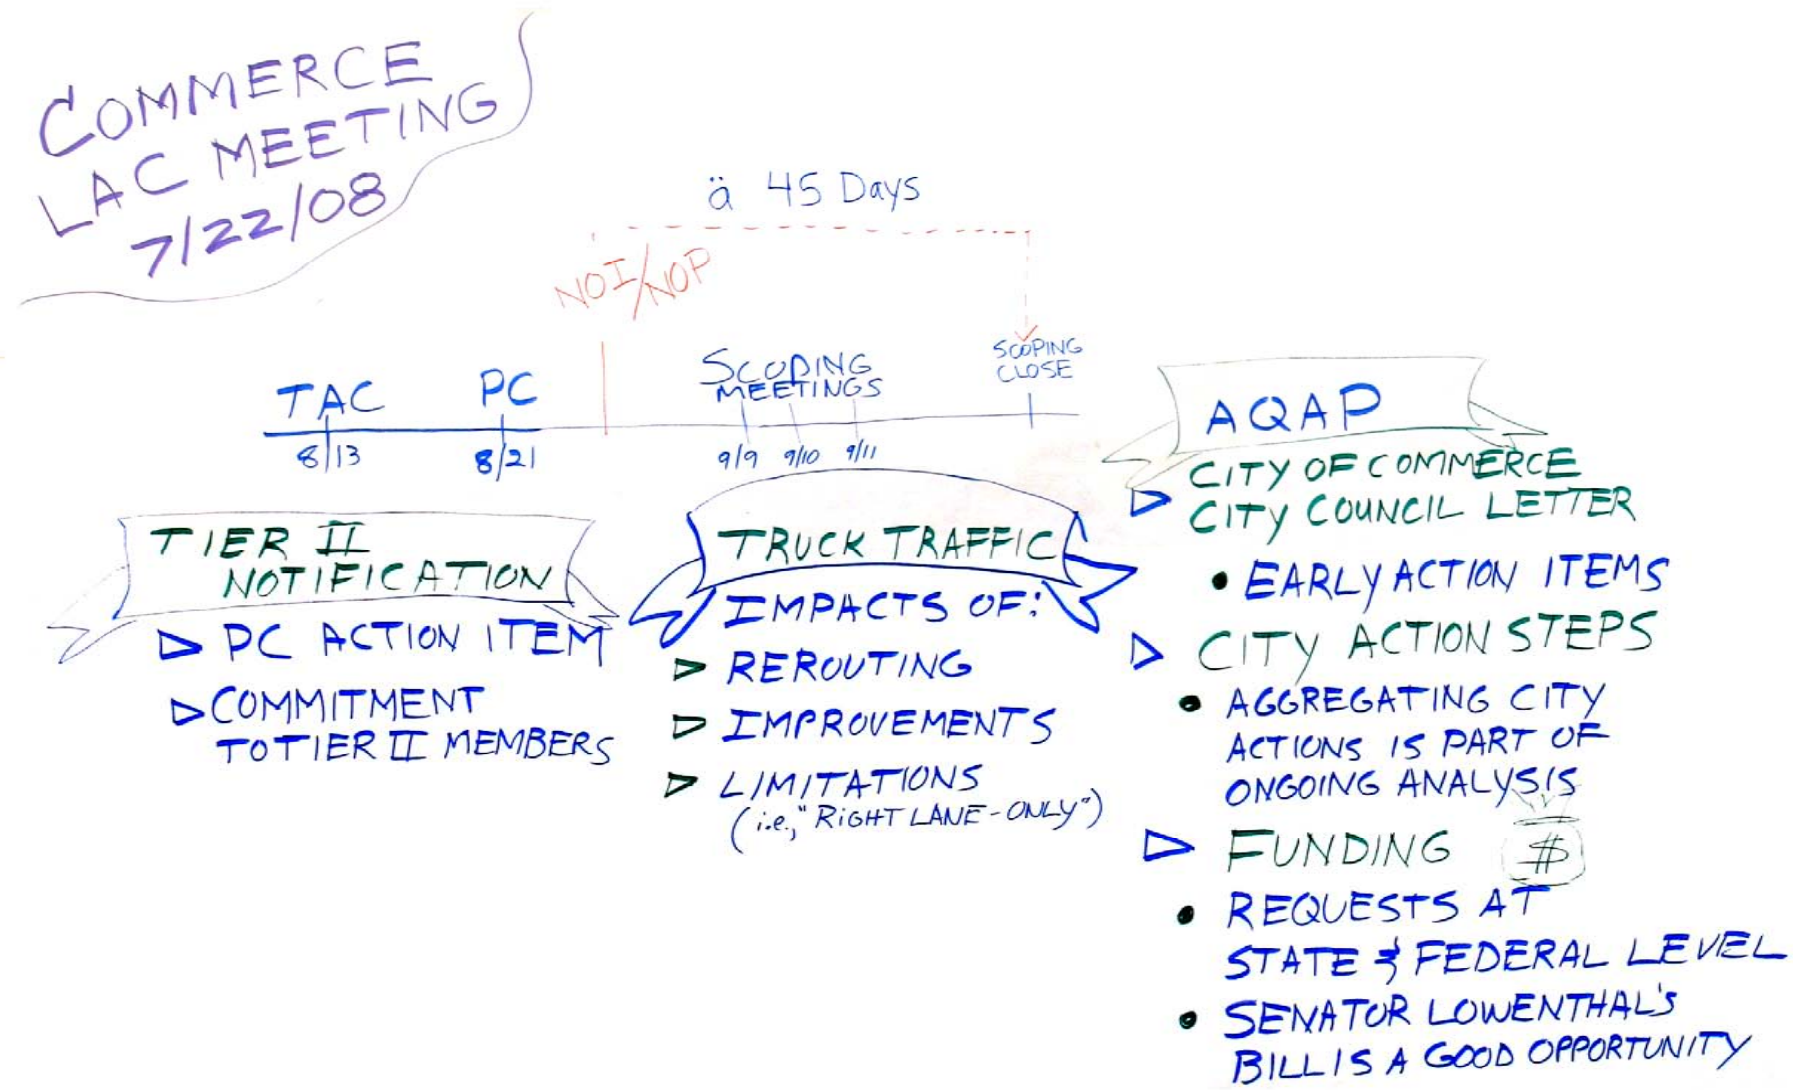 COMMERCE
LAC MEETING
7/22/08
ä 45 Days
NOI/NOP
TAC
PC
SCOPING
MEETINGS
SCOPING
CLOSE
8/13
8/21
9/9 9/10 9/11
TIER II
NOTIFICATION
PC ACTION ITEM
COMMITMENT
TO TIER II MEMBERS
TRUCK TRAFFIC
IMPACTS OF:
REROUTING
IMPROVEMENTS
LIMITATIONS
(i.e., "RIGHT LANE-ONLY")
AQAP
CITY OF COMMERCE
CITY COUNCIL LETTER
• EARLY ACTION ITEMS
CITY ACTION STEPS
• AGGREGATING CITY
ACTIONS IS PART OF
ONGOING ANALYSIS
FUNDING $
• REQUESTS AT
STATE & FEDERAL LEVEL
• SENATOR LOWENTHAL'S
BILL IS A GOOD OPPORTUNITY